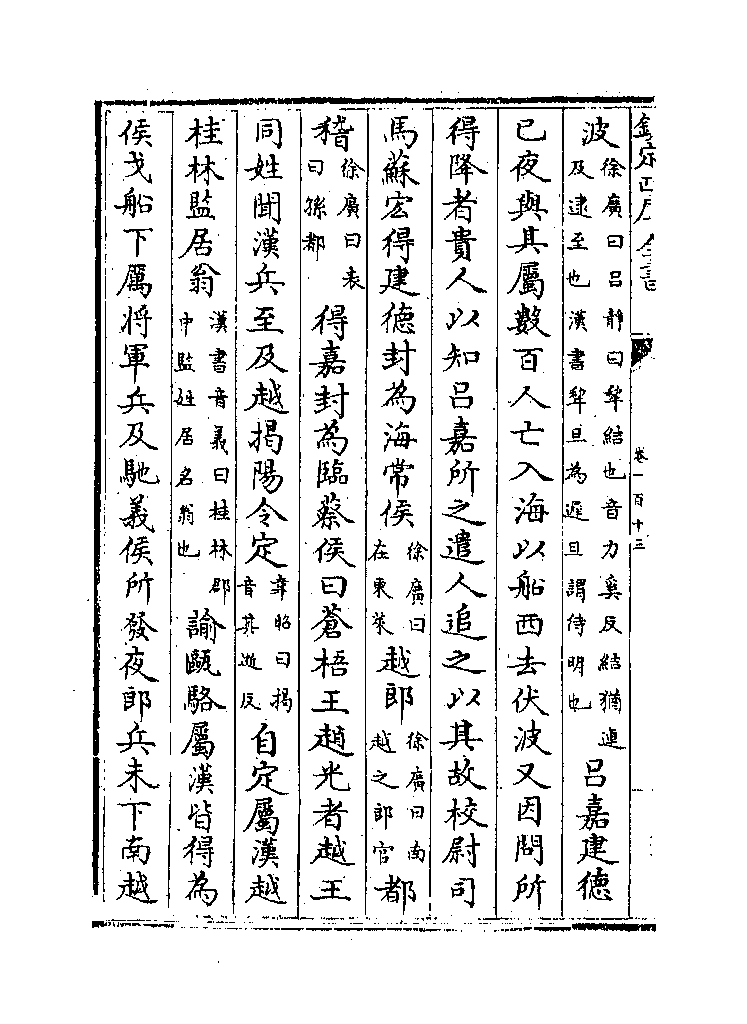 欽定四庫全書　卷一百十三
波徐廣曰呂靜曰犂結也音力奚反結猶連及逮至也漢書犂旦為遲旦謂待明也呂嘉建德
已夜與其屬數百人亡入海以船西去伏波又因問所
得降者貴人以知呂嘉所之遣人追之以其故校尉司
馬蘇宏得建德封為海常侯徐廣曰在東萊越郎徐廣曰南越之郎官都
稽徐廣曰表曰孫都得嘉封為臨蔡侯曰蒼梧王趙光者越王
同姓聞漢兵至及越揭陽令定韋昭曰揭音其逝反自定屬漢越
桂林監居翁漢書音義曰桂林郡中監姓居名翁也諭甌駱屬漢皆得為
侯戈船下厲將軍兵及馳義侯所發夜郎兵未下南越